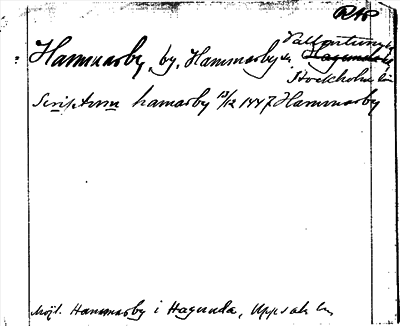 RAP
Hammarby, by, Hammarby sn, Vallentuna hd
Stockholms län
Scriptum hamarby 13/12 1447 Hammarby
Möjl. Hammarby i Hagunda, Uppsala län